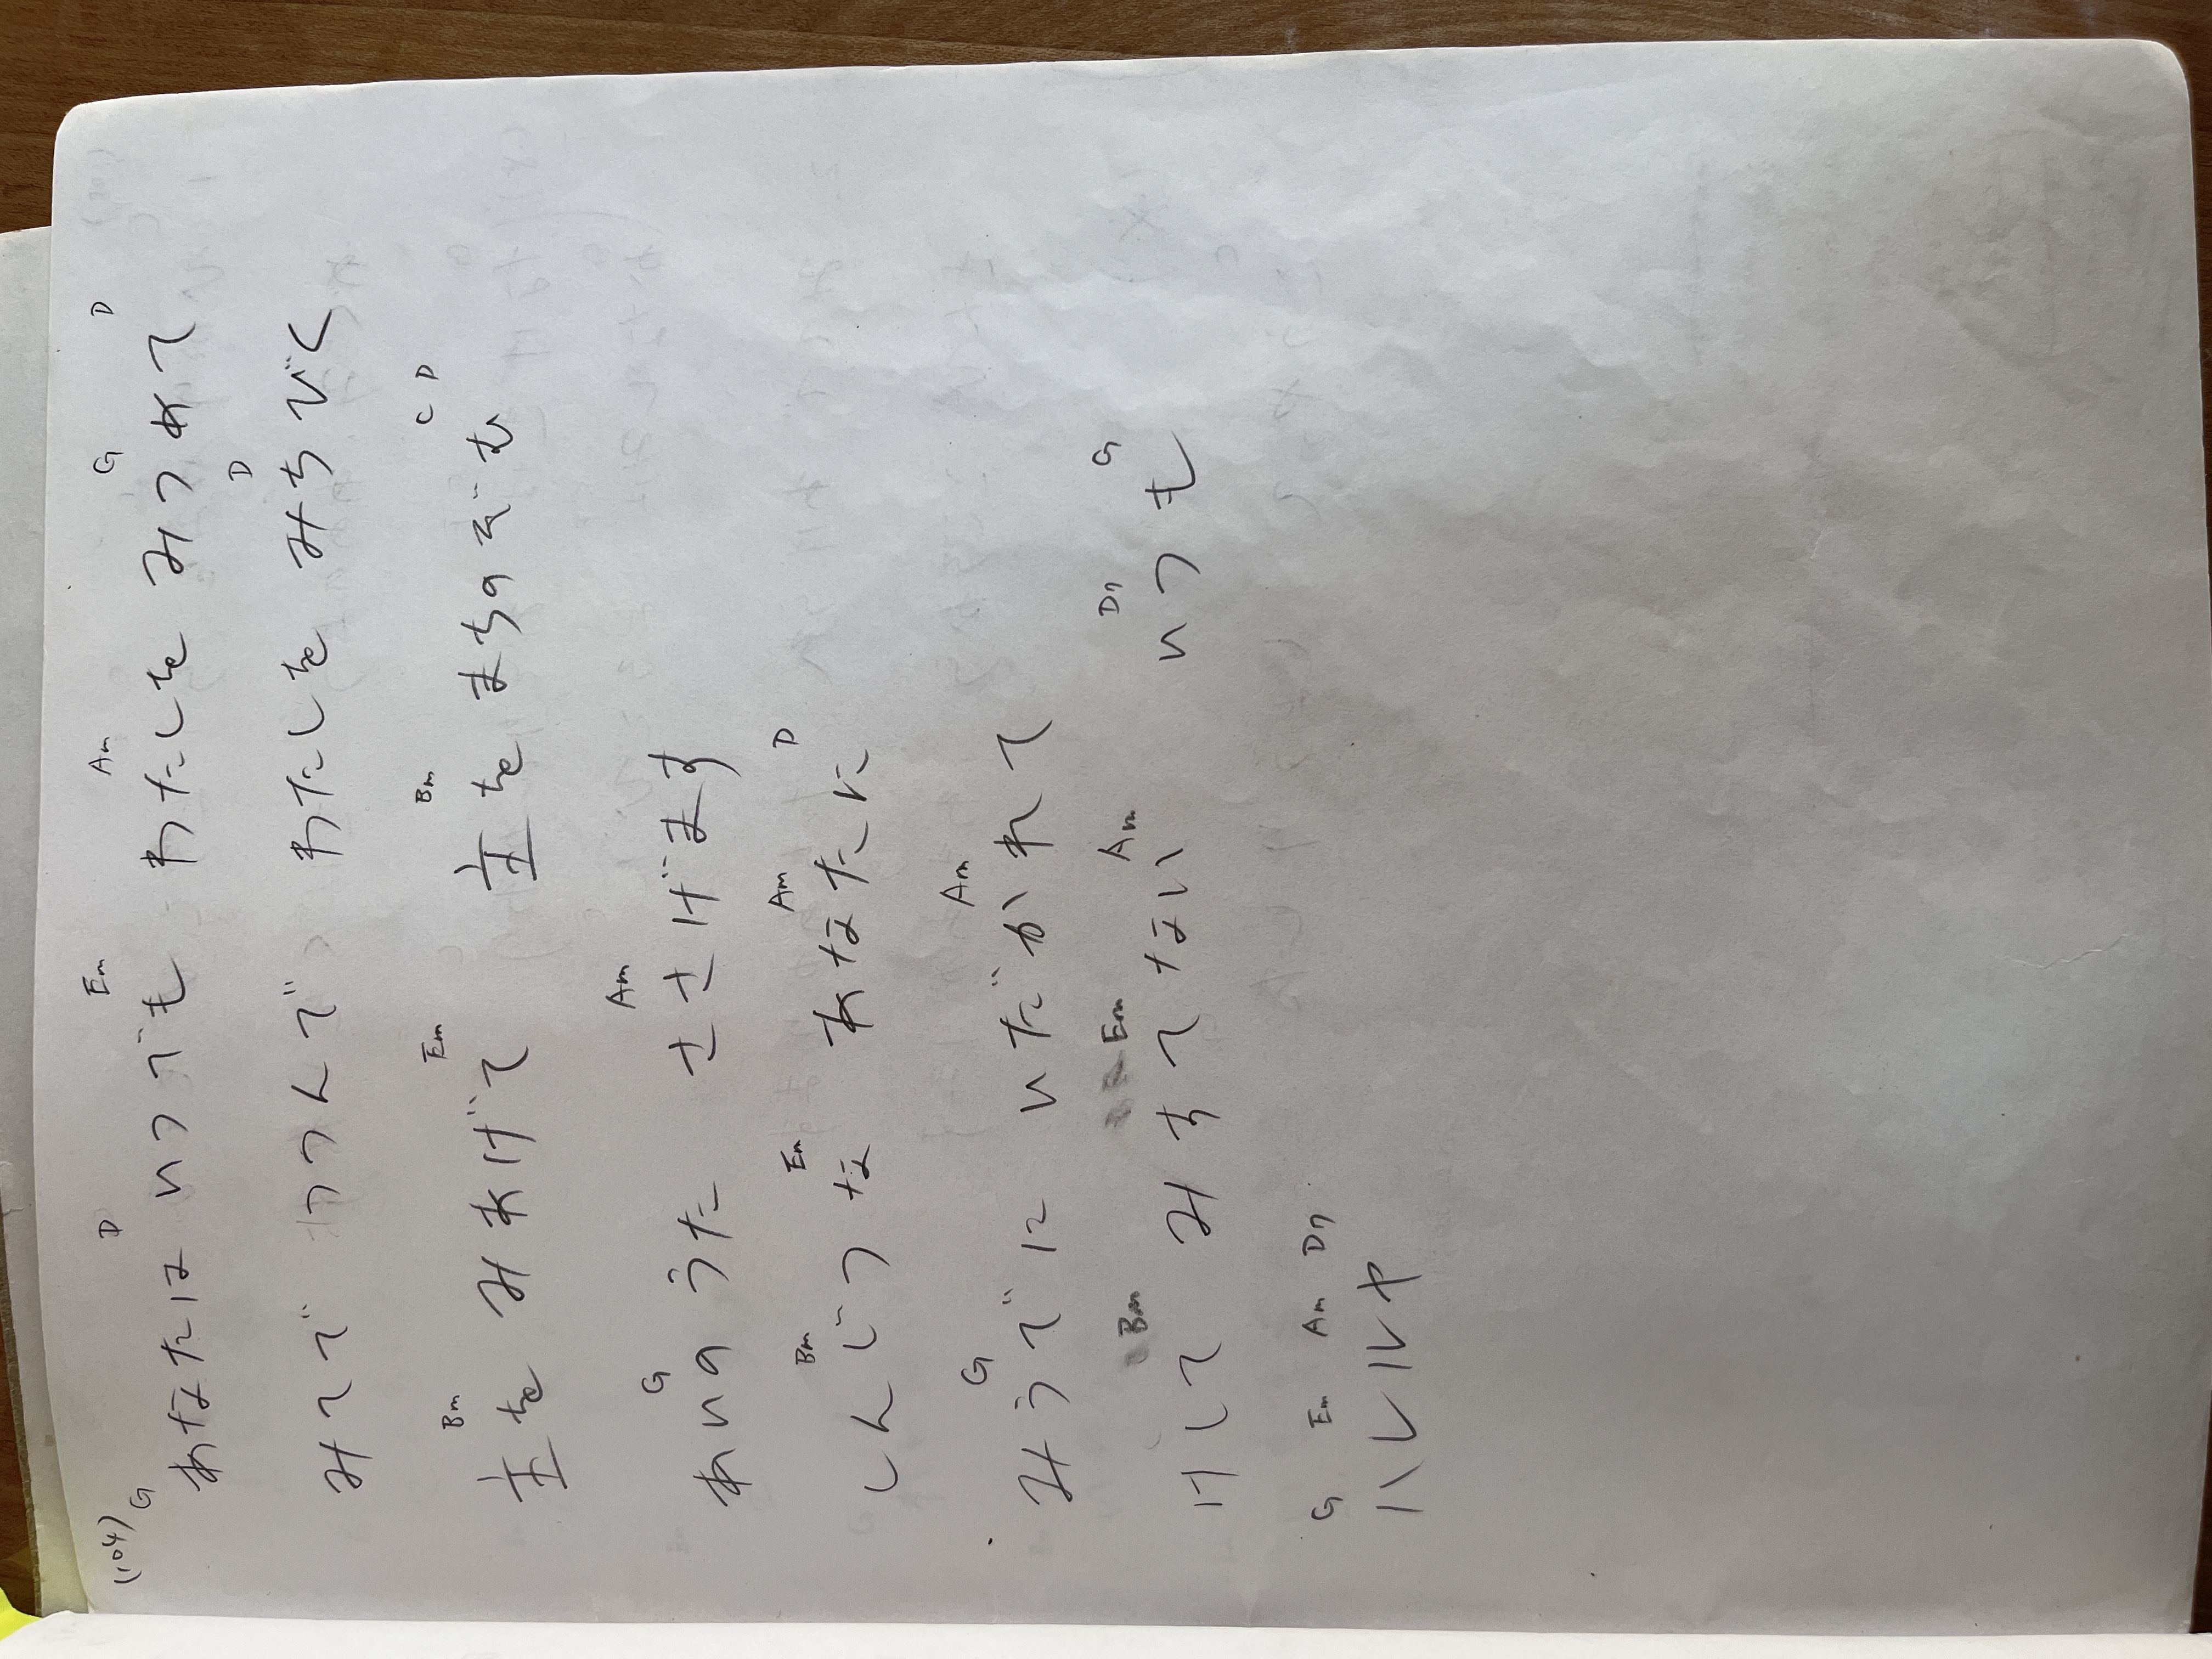 (104)
G D Em Am G D
あなたは いつでも わたしを みつめて
D
みてで つつんで わたしを みちびく
Bm Em Bm C D
主を みあげて 主を まちのぞむ
G Am
あいのうた ささげます
Bm Em Am D
しんじつな あなたに
G Am
みうでに いだかれて
Bm Em Am D7 G
けして みすてない いつも
G Em Am D7
ハレルヤ